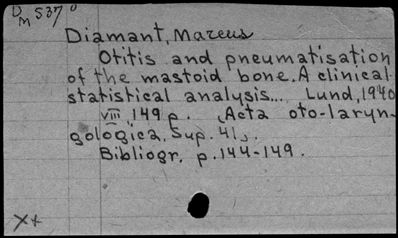 D
M 537
Diamant, Marcus
Otitis and pneumatisation
of the mastoid bone. A clinical-
statistical analysis... Lund, 1940
VIII, 149 p. (Acta oto-laryn-
gologica. Sup. 41).
Bibliogr. p. 144-149.
X+